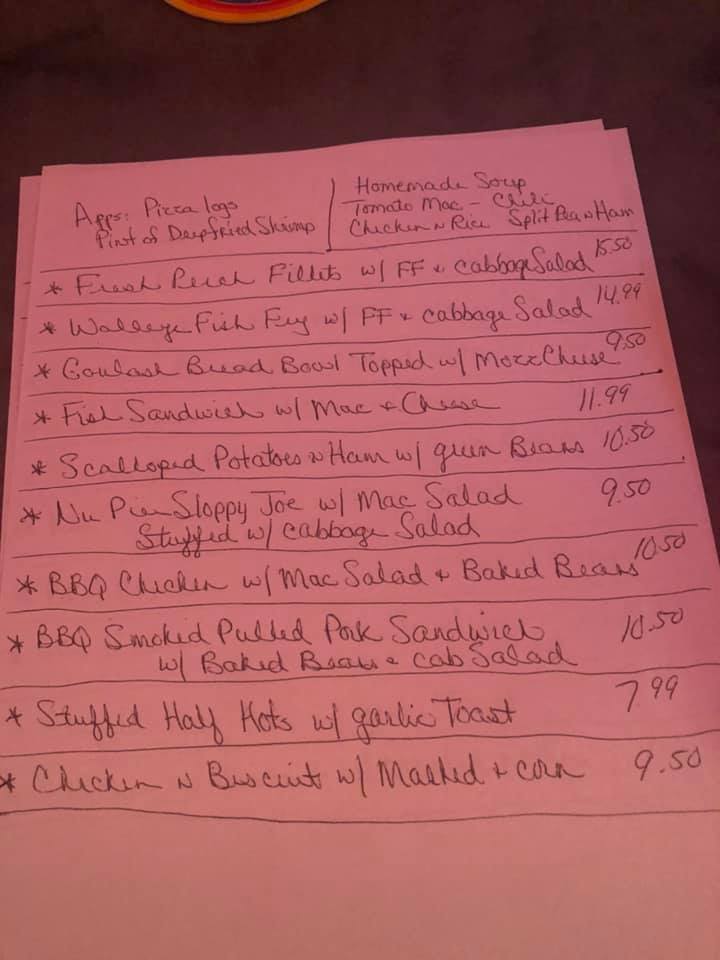 Apps: Pizza logs
Pint of Deepfried Shrimp
Homemade Soup
Tomato Mac - Chili
Chicken N Rice Split Pea N Ham
* Fresh Perch Fillets w/ FF + cabbage Salad 15.50
* Walleye Fish Fry w/ FF + cabbage Salad 14.99
* Goulash Bread Bowl Topped w/ Mozz Cheese 9.50
* Fish Sandwich w/ Mac + Cheese 11.99
* Scalloped Potatoes N Ham w/ green Beans 10.50
* Nu Pier Sloppy Joe w/ Mac Salad 9.50
Stuffed w/ cabbage Salad
* BBQ Chicken w/ Mac Salad + Baked Beans 10.50
* BBQ Smoked Pulled Pork Sandwich 10.50
w/ Baked Beans + cab Salad
* Stuffed Half Hots w/ garlic Toast 7.99
* Chicken N Biscuit w/ Mashed + corn 9.50